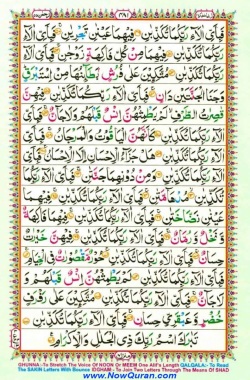 ۳۹۱
فَبِاَىِّ اٰلَآءِ رَبِّكُمَا تُكَذِّبٰنِ فِيْهِمَا عَيْنٰنِ تَجْرِيٰنِ فَبِاَىِّ اٰلَآءِ
رَبِّكُمَا تُكَذِّبٰنِ فِيْهِمَا مِنْ كُلِّ فَاكِهَةٍ زَوْجٰنِ فَبِاَىِّ
اٰلَآءِ رَبِّكُمَا تُكَذِّبٰنِ مُتَّكِئِيْنَ عَلٰى فُرُشٍ بَطَآئِنُهَا مِنْ اِسْتَبْرَقٍ
وَجَنَا الْجَنَّتَيْنِ دَانٍ فَبِاَىِّ اٰلَآءِ رَبِّكُمَا تُكَذِّبٰنِ فِيْهِنَّ
قٰصِرٰتُ الطَّرْفِ لَمْ يَطْمِثْهُنَّ اِنْسٌ قَبْلَهُمْ وَلَا جَآنٌّ فَبِاَىِّ
اٰلَآءِ رَبِّكُمَا تُكَذِّبٰنِ كَاَنَّهُنَّ الْيَاقُوْتُ وَالْمَرْجَانُ فَبِاَىِّ
اٰلَآءِ رَبِّكُمَا تُكَذِّبٰنِ هَلْ جَزَآءُ الْاِحْسَانِ اِلَّا الْاِحْسَانُ فَبِاَىِّ
اٰلَآءِ رَبِّكُمَا تُكَذِّبٰنِ وَمِنْ دُوْنِهِمَا جَنَّتٰنِ فَبِاَىِّ اٰلَآءِ
رَبِّكُمَا تُكَذِّبٰنِ مُدْهَآمَّتٰنِ فَبِاَىِّ اٰلَآءِ رَبِّكُمَا تُكَذِّبٰنِ فِيْهِمَا
عَيْنٰنِ نَضَّاخَتٰنِ فَبِاَىِّ اٰلَآءِ رَبِّكُمَا تُكَذِّبٰنِ فِيْهِمَا فَاكِهَةٌ
وَّنَخْلٌ وَّرُمَّانٌ فَبِاَىِّ اٰلَآءِ رَبِّكُمَا تُكَذِّبٰنِ فِيْهِنَّ خَيْرٰتٌ
حِسَانٌ فَبِاَىِّ اٰلَآءِ رَبِّكُمَا تُكَذِّبٰنِ حُوْرٌ مَّقْصُوْرٰتٌ فِى الْخِيَامِ
فَبِاَىِّ اٰلَآءِ رَبِّكُمَا تُكَذِّبٰنِ لَمْ يَطْمِثْهُنَّ اِنْسٌ قَبْلَهُمْ وَ
لَا جَآنٌّ فَبِاَىِّ اٰلَآءِ رَبِّكُمَا تُكَذِّبٰنِ مُتَّكِئِيْنَ عَلٰى رَفْرَفٍ
خُضْرٍ وَّعَبْقَرِىٍّ حِسَانٍ فَبِاَىِّ اٰلَآءِ رَبِّكُمَا تُكَذِّبٰنِ
تَبٰرَكَ اسْمُ رَبِّكَ ذِى الْجَلٰلِ وَالْاِكْرَامِ
GHUNNA:- To Stretch The Voice Of NOON Or MEEM One Alif's Length QALQALA:- To Read
The SAKIN Letters With Bounce IDGHAM:- To Join Two Letters Through The Means Of SHAD
www.NowQuran.com